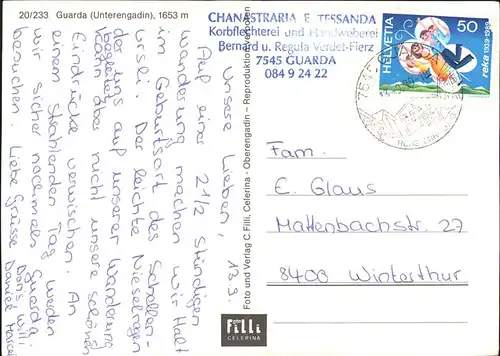 20/233 Guarda (Unterengadin), 1653 m
13.9.
Unsere Lieben,
Auf einer 2 1/2 stündigen
Wanderung machen wir Halt
im Geburtsort des Schellen-
Ursli. Der leichte Nieselregen
der uns auf unserer Wanderung
begleitet
kann aber nicht unsere schönen
Eindrücke verwischen. An
einem strahlenden Tag werden
wir sicher nochmals Guarda
besuchen. Liebe Grüsse Doris Willi
Daniel Marcel
Foto und Verlag C. Filli, Celerina - Oberengadin - Reproduktion verboten
foto
Filli
CELERINA
CHANASTRARIA E TESSANDA
Korbflechterei und Handweberei
Bernard u. Regula Verdet-Fierz
7545 GUARDA
084 9 24 22
HELVETIA
50
reka 1939-1989
Fam.
E. Glaus
Mattenbachstr. 27
8400 Winterthur